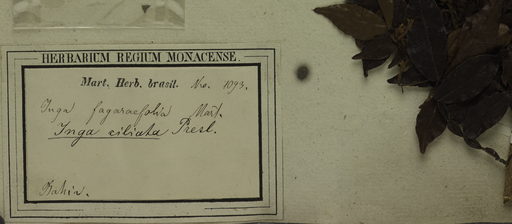 HERBARIUM REGIUM MONACENSE.
Mart. Herb. brasil. Nro. 1093.
Inga fagaraefolia Mart.
Inga ciliata Presl.
Bahia.